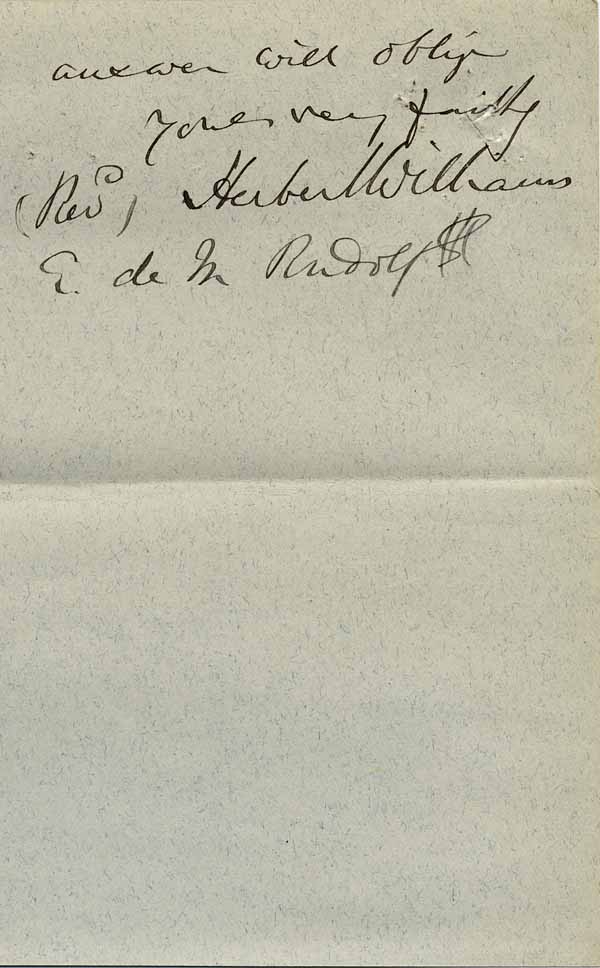 answer will oblige
Yours very faithy
(Revd) Herbert Williams
E. de M Rudolf